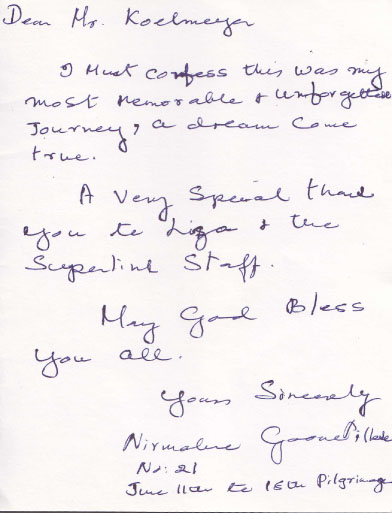 Dear Mr. Koelmeyer
I Must confess this was my
most Memorable & Unforgettable
Journey, a dream Come
true.
A Very Special thank
you to Liza & the
Superlink Staff.
May God Bless
You all.
Yours Sincerely
Nirmalene
No: 21
June 11th to 15th Pilgrimage